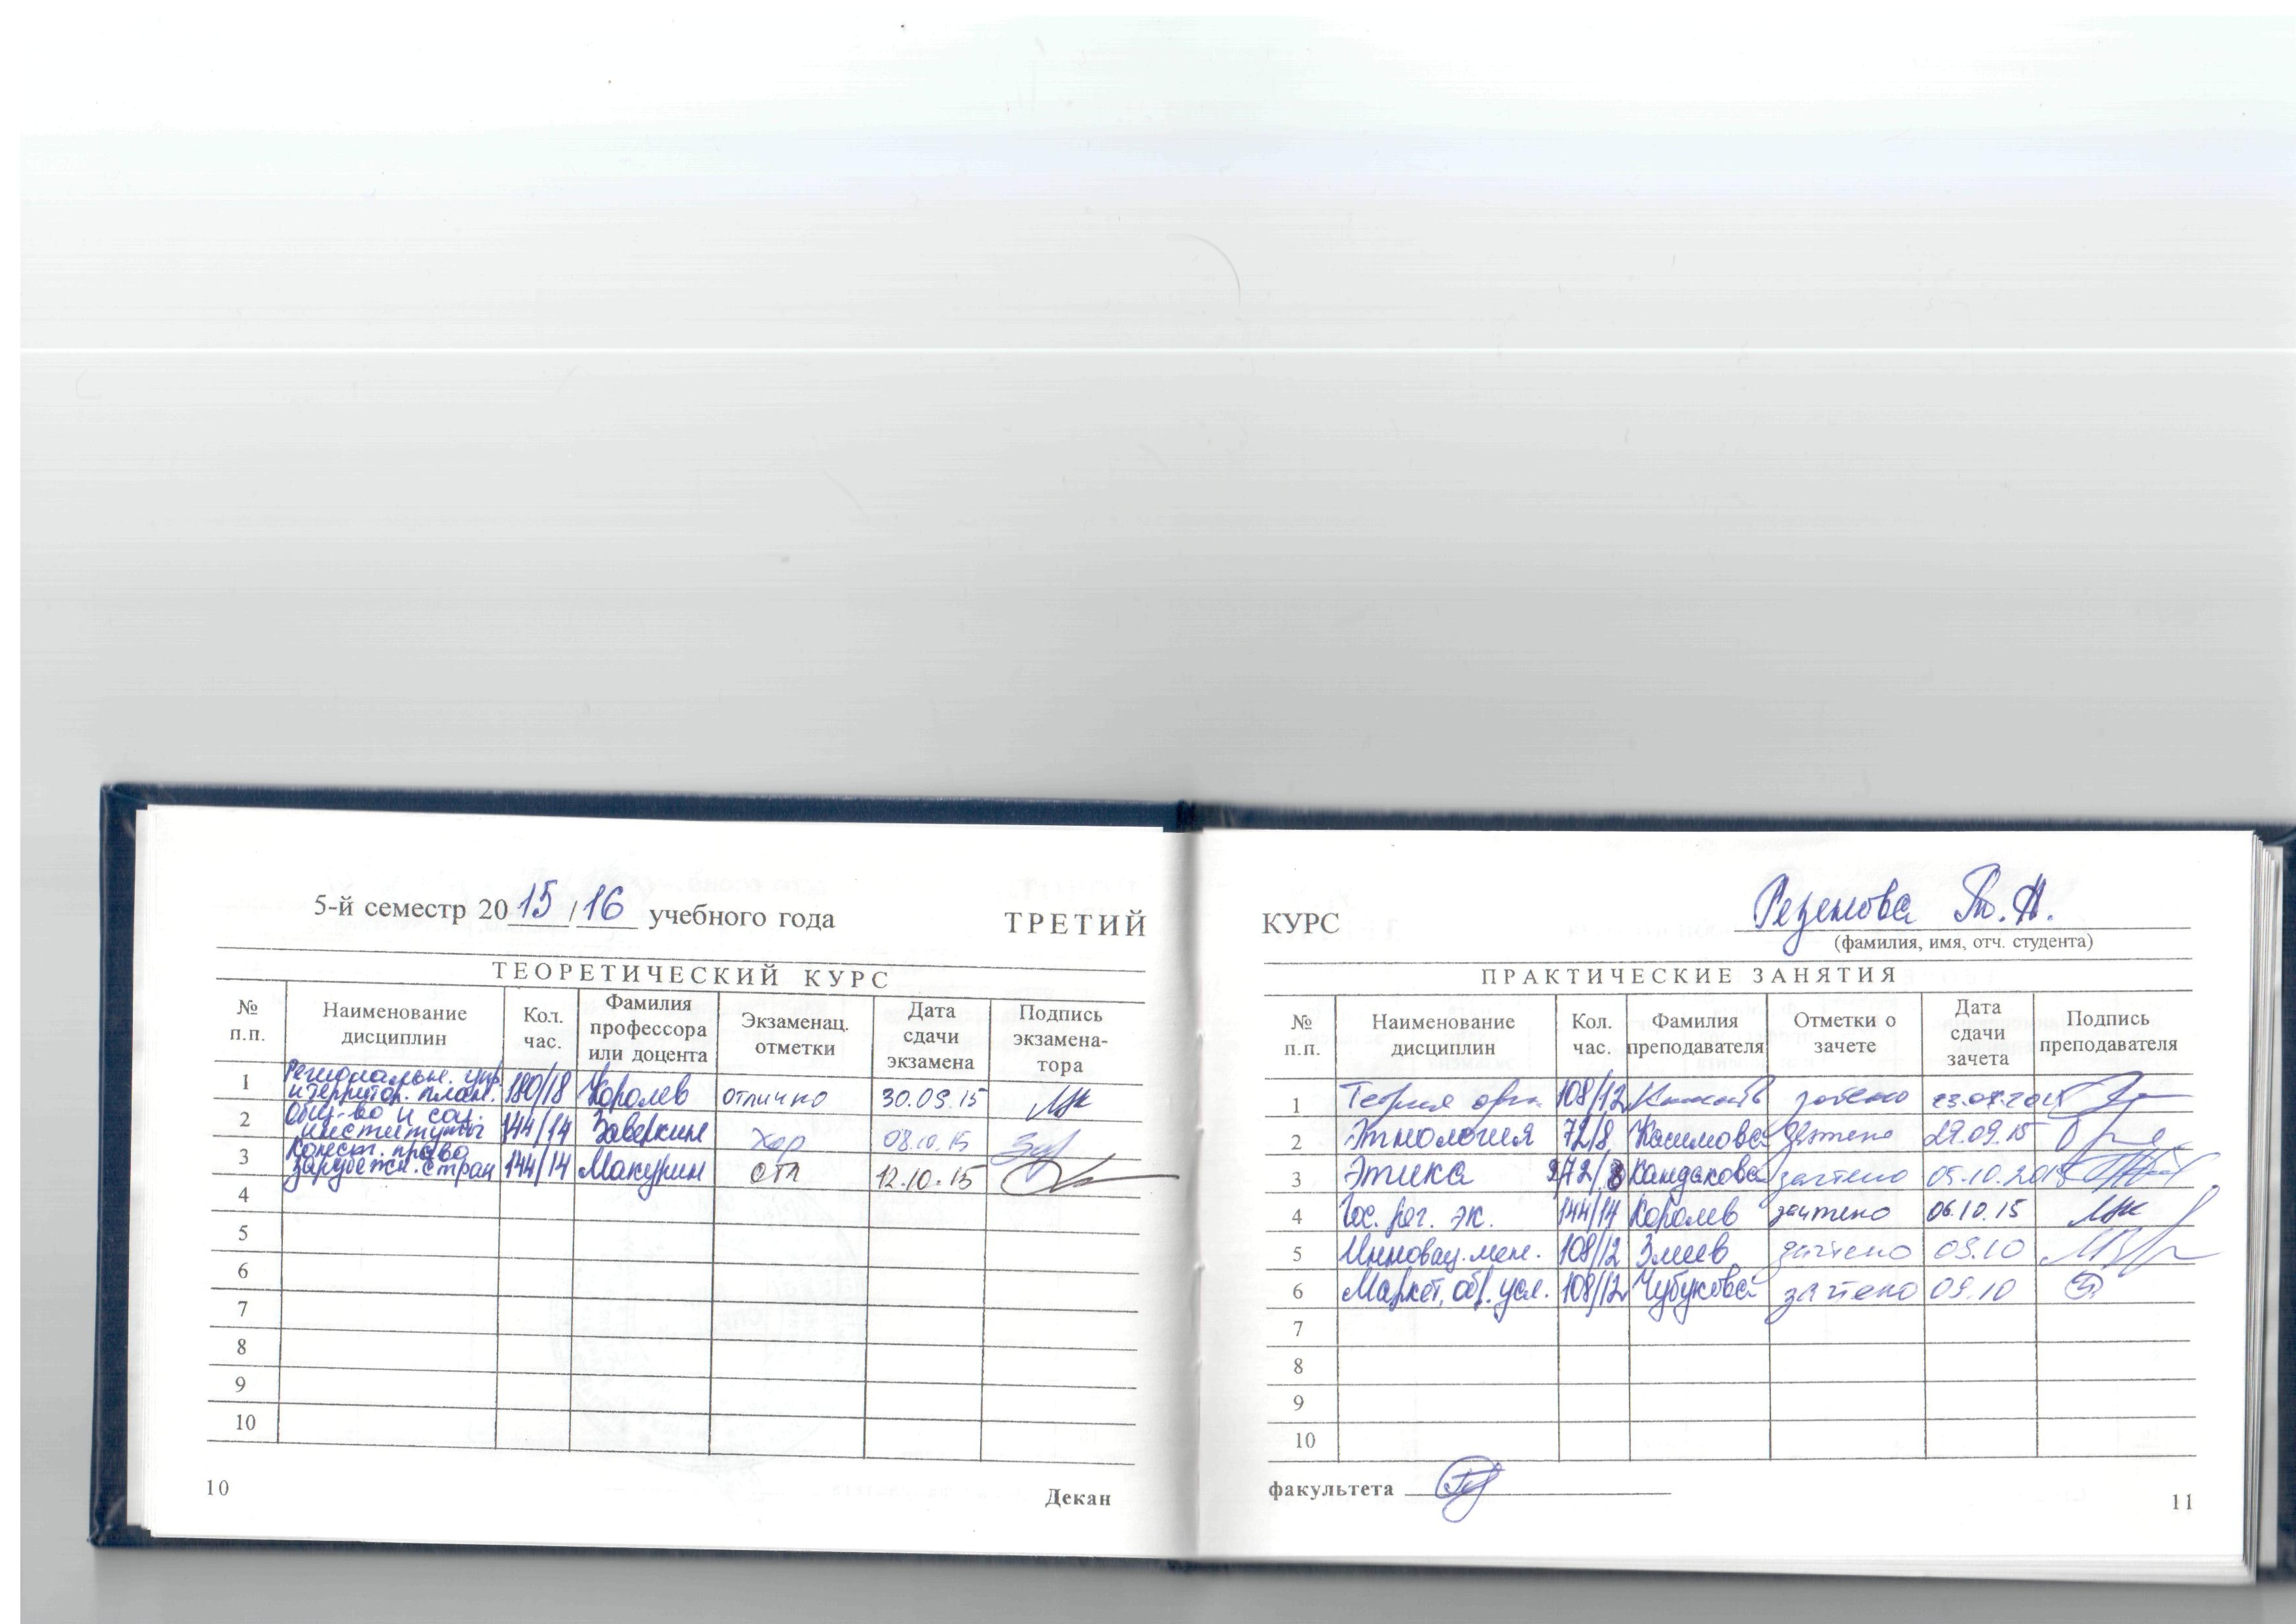 5-й семестр 2015/16 учебного года ТРЕТИЙ
ТЕОРЕТИЧЕСКИЙ КУРС
№ п.п. Наименование дисциплин Кол. час. Фамилия профессора или доцента Экзаменац. отметки Дата сдачи экзамена Подпись экзамена-тора
1 Региональн. упр. и территор. план. 180/18 Королев отлично 30.09.15
2 Общ-во и соц. институты 144/14 Заверкин хор 08.10.15
3 Конст. право зарубежн. стран 144/14 Макурин отл 12.10.15
4
5
6
7
8
9
10
10 Декан
КУРС Т.А.
(фамилия, имя, отч. студента)
ПРАКТИЧЕСКИЕ ЗАНЯТИЯ
№ п.п. Наименование дисциплин Кол. час. Фамилия преподавателя Отметки о зачете Дата сдачи зачета Подпись преподавателя
1 Теория орг. 108/12 зачтено
2 Этнология 72/8 Касимова зачтено 29.09.15
3 Этика 72/8 Кандакова зачтено 05.10.2015
4 Гос. рег. эк. 144/14 Королев зачтено 06.10.15
5 Инновац. мен. 108/12 Змеев зачтено 09.10
6 Маркет. обр. усл. 108/12 Чубукова зачтено 09.10
7
8
9
10
факультета
11